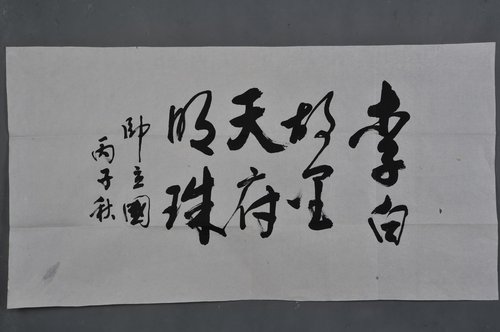 李白
故里
天府
明珠
帅立國
丙子秋